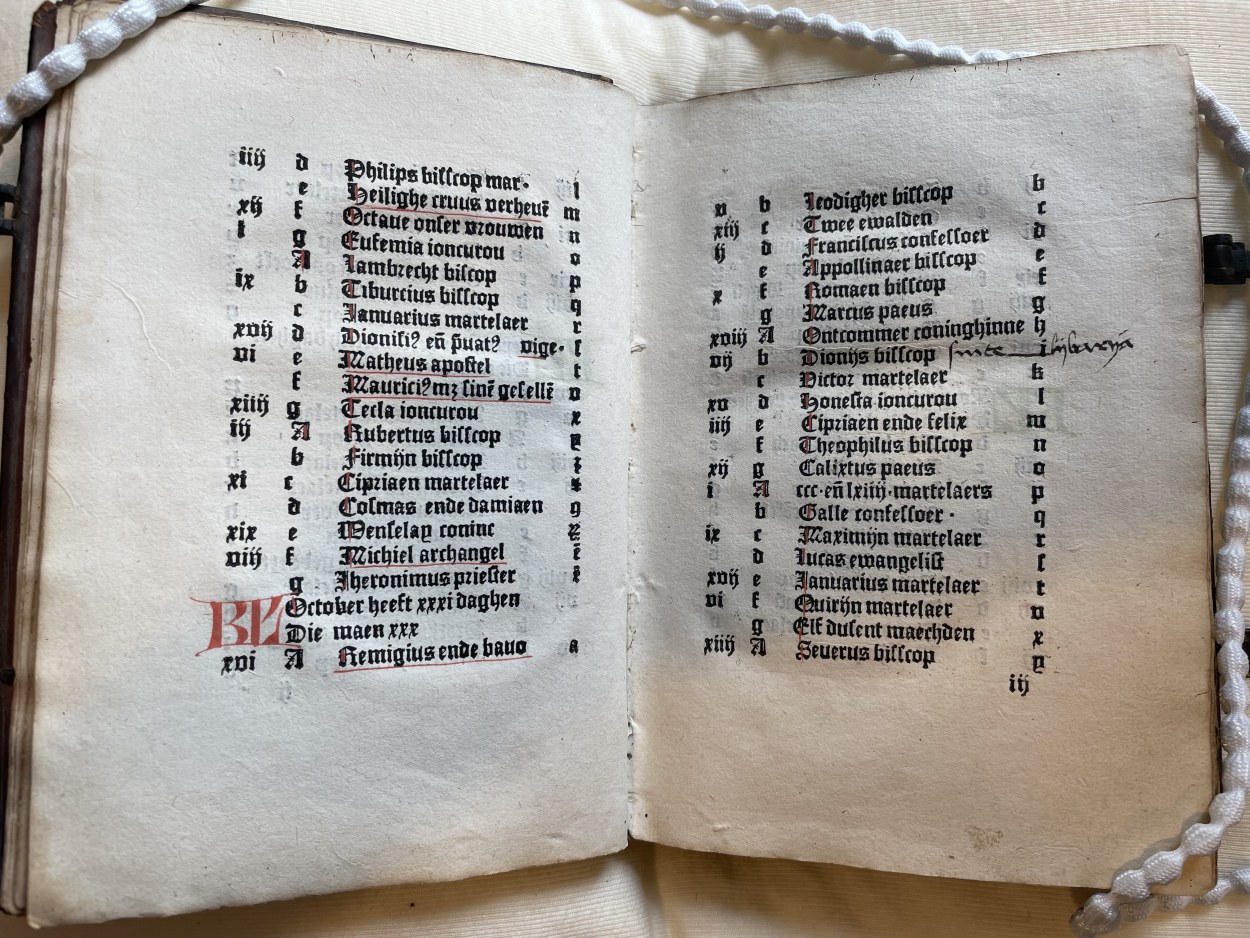 iiij d Philips bisscop mar· l
e Heilighe cruus verheuē m
xij f Octaue onser vrouwen n
i g Eufemia ioncurou o
A Lambrecht biscop p
ix b Tiburcius bisscop q
c Januarius martelaer r
xvij d Dionisiꝰ eñ p̄uatꝰ vige· s
vi e Matheus apostel t
f Mauriciꝰ mz sinē gesellē v
xiiij g Tecla ioncurou x
iij A Rubertus bisscop y
b Firmijn bisscop z
xi c Cipriaen martelaer
d Cosmas ende damiaen 9
xix e Wenselay coninc
viij f Michiel archangel ē
g Jheronimus priester ē
KL October heeft xxxi daghen
Die maen xxx
xvi A Remigius ende bavo a
v b Leodigher bisscop b
xiij c Twee ewalden c
ij d Franciscus confessoer d
e Appollinaer bisscop e
x f Romaen bisscop f
g Marcus paeus g
xviij A Ontcommer coninghinne h
vij b Dionijs bisscop i
c Victor martelaer k
xv d Honesta ioncurou l
iiij e Cipriaen ende felix m
f Theophilus bisscop n
xij g Calixtus paeus o
i A ccc·eñ lxiiij·martelaers p
b Galle confessoer · q
ix c Maximijn martelaer r
d Lucas ewangelist s
xvij e Januarius martelaer t
vi f Quirijn martelaer v
g Elf dusent maechden x
xiiij A Severus bisscop y
iij